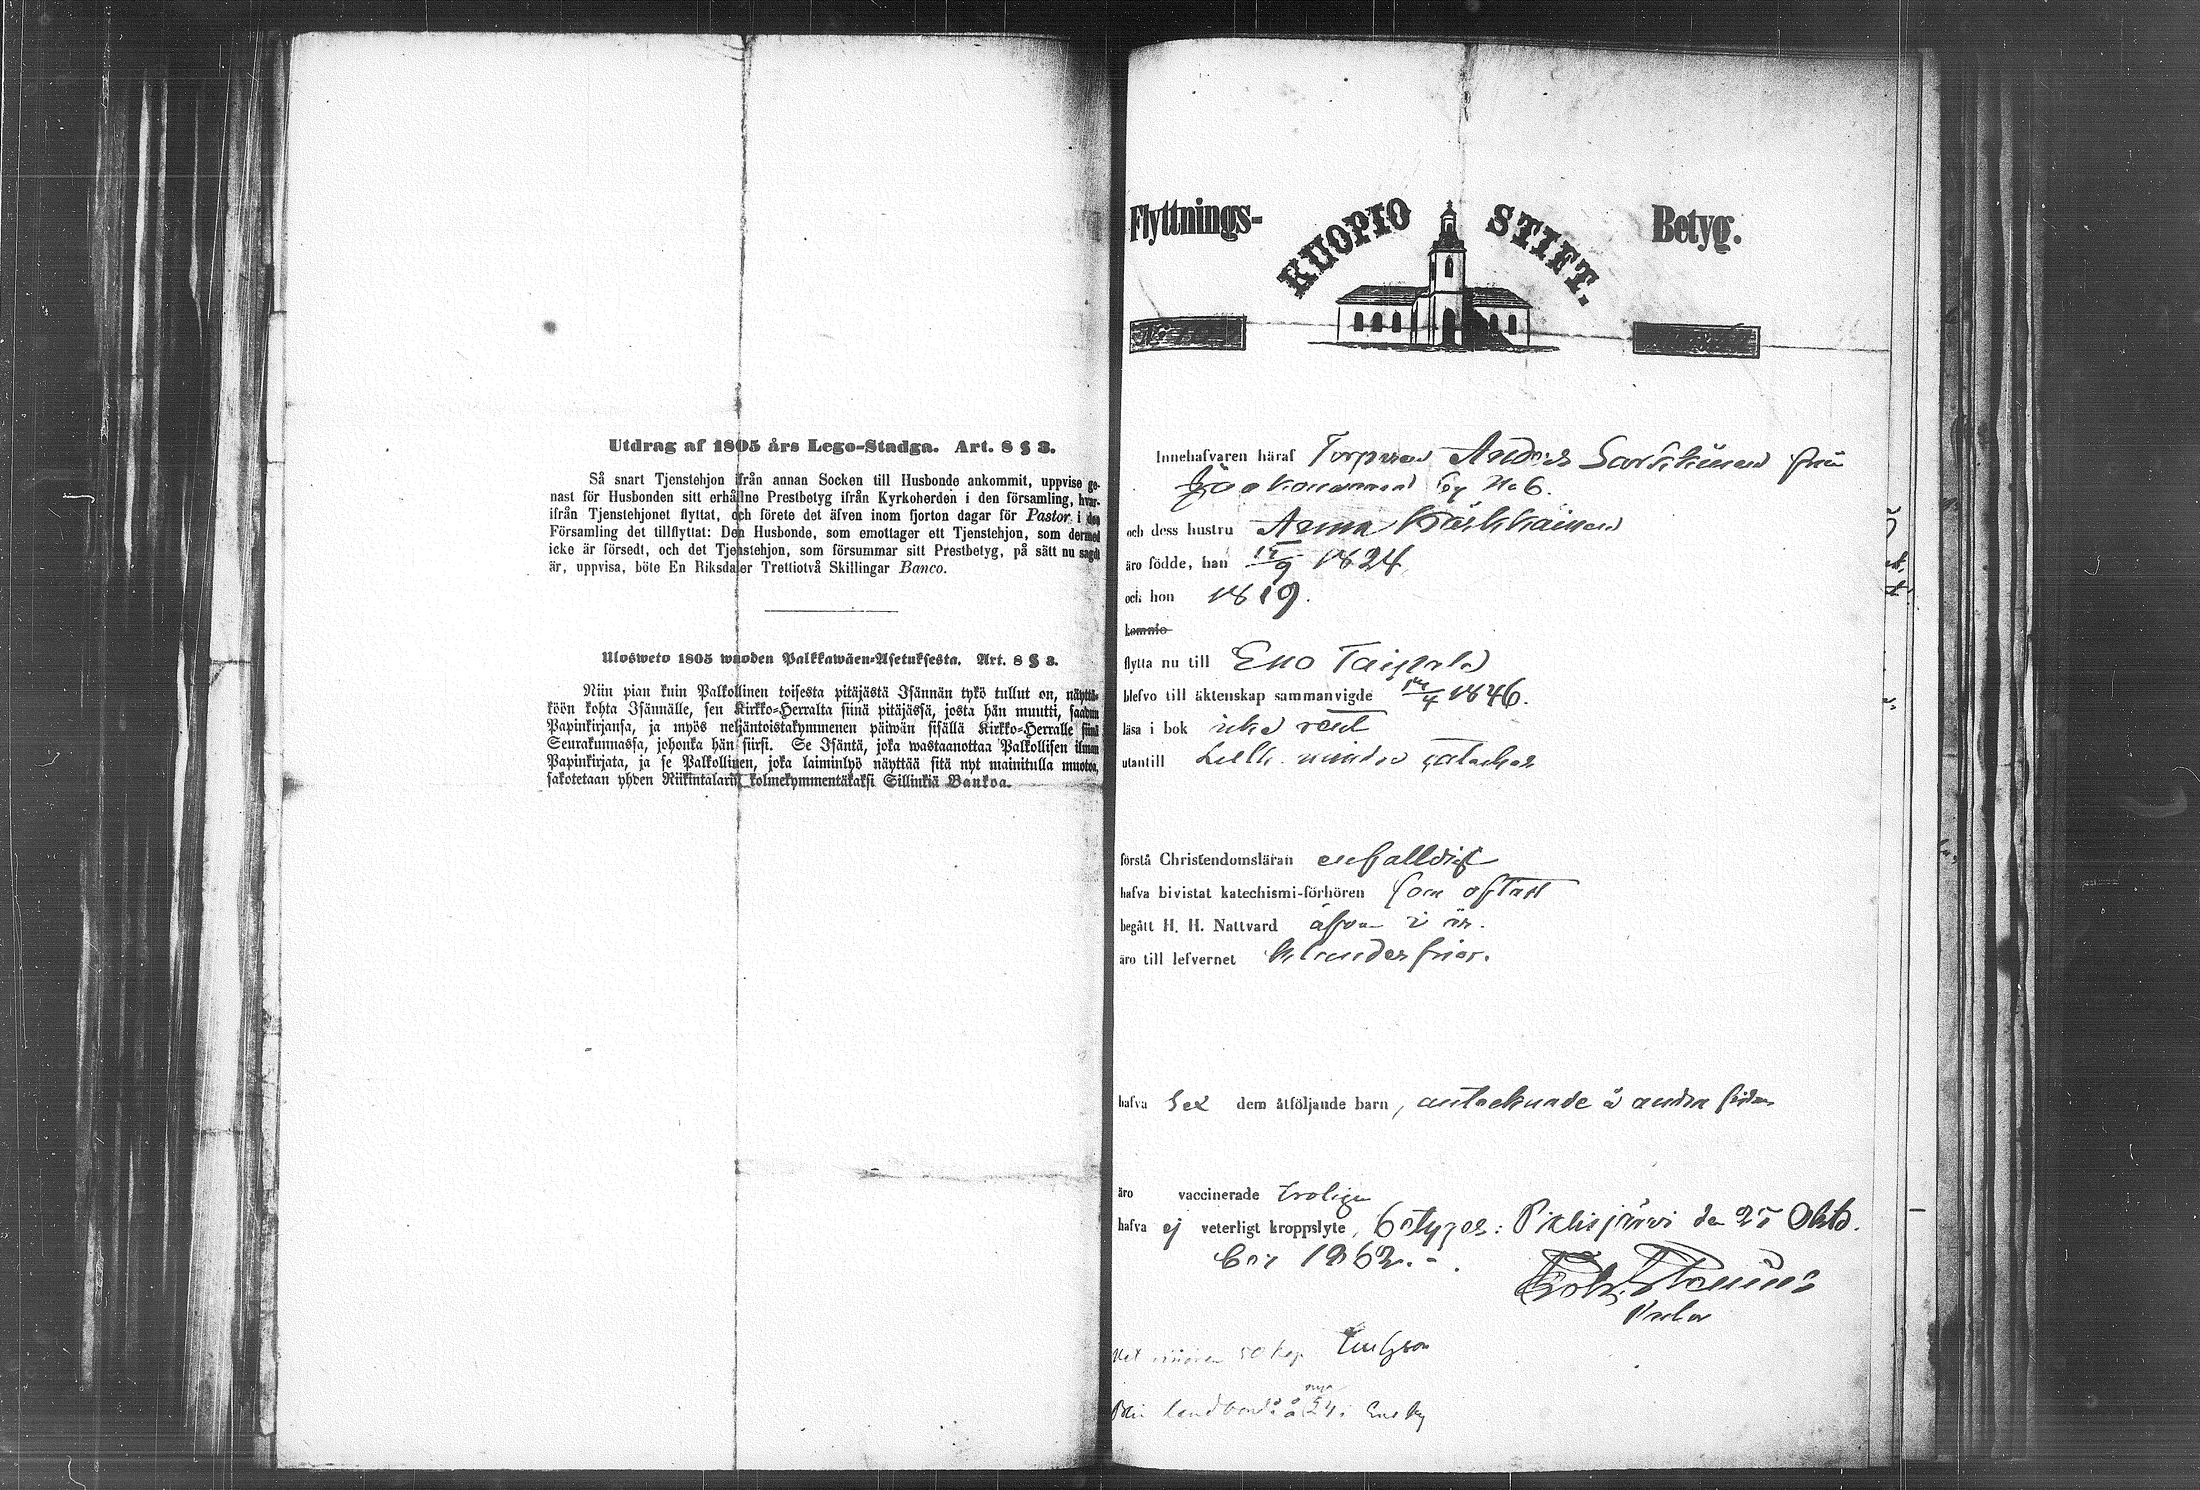 Utdrag af 1805 års Lego-Stadga. Art. 8 § 3.
Så snart Tjenstehjon ifrån annan Socken till Husbonde ankommit, uppvise ge-
nast för Husbonden sitt erhållne Prestbetyg ifrån Kyrkoherden i den församling, hvar-
ifrån Tjenstehjonet flyttat, och förete det äfven inom fjorton dagar för Pastor i den
Församling det tillflyttat: Den Husbonde, som emottager ett Tjenstehjon, som dermed
icke är försedt, och det Tjenstehjon, som försummar sitt Prestbetyg, på sätt nu sagdt
är, uppvisa, böte En Riksdaler Trettiotvå Skillingar Banco.
Ulosweto 1805 wuoden Palkkawäen-Asetuksesta. Art. 8 § 3.
Niin pian kuin Palkollinen toisesta pitäjästä Isännän tykö tullut on, näyttä-
köön kohta Isännälle, sen Kirkko-Herralta siinä pitäjässä, josta hän muutti, saadun
Papinkirjansa, ja myös neljäntoistakymmenen päiwän sisällä Kirkko-Herralle siinä
Seurakunnassa, johonka hän siirsi. Se Isäntä, joka wastaanottaa Palkollisen ilman
Papinkirjata, ja se Palkollinen, joka laiminlyö näyttää sitä nyt mainitulla muotoa,
sakotetaan yhden Riikintalarin kolmekymmentäkaksi Sillinkiä Bankoa.
Flyttnings- KUOPIO STIFT. Betyg.
Innehafvaren häraf Torparen Anders Sarkkinen från
by No 6.
och dess hustru Anna Kärkkäinen
äro födde, han 1824
och hon 1819.
komne
flytta nu till Eno Taipale
blefvo till äktenskap sammanvigde 1846.
läsa i bok icke rent
utantill Luth. mindre cateches
förstå Christendomsläran enfalldigt
hafva bivistat katechismi-förhören som oftast
begått H. H. Nattvard äfven i år.
äro till lefvernet klanderfrior.
hafva sex dem åtföljande barn, antecknade å andra sidan
äro vaccinerade troligen
hafva ej veterligt kroppslyte, betygar: Pielisjärvi den 25 Octo
ber 1862.
50 kop